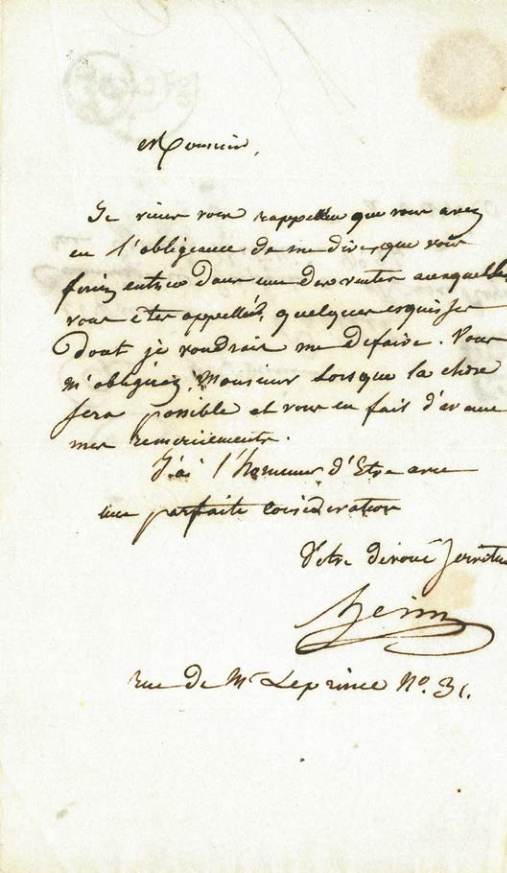 Monsieur,
Je viens vous rappeller que vous avez
eu l'obligeance de me dire que vous
feriez entrer dans une des ventes auxquelles
vous êtes appellés, quelques esquisses
dont je voudrais me defaire. Vous
m'obligerez, Monsieur lorsque la chose
sera possible et vous en fait d'avance
mes remerciements.
J'ai l'honneur d'Etre avec
une parfaite considération
Votre dévoué Serviteur
Heim
rue de Mr Leprince No. 31.